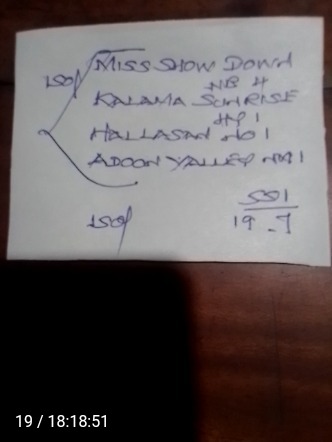 150/ MISS SHOW DOWN
NB 4
KALAMA SUNRISE
NP 1
HALLASAN NO 1
ADOON VALLEY NO 1
150/
SS1
19-7
19 / 18:18:51